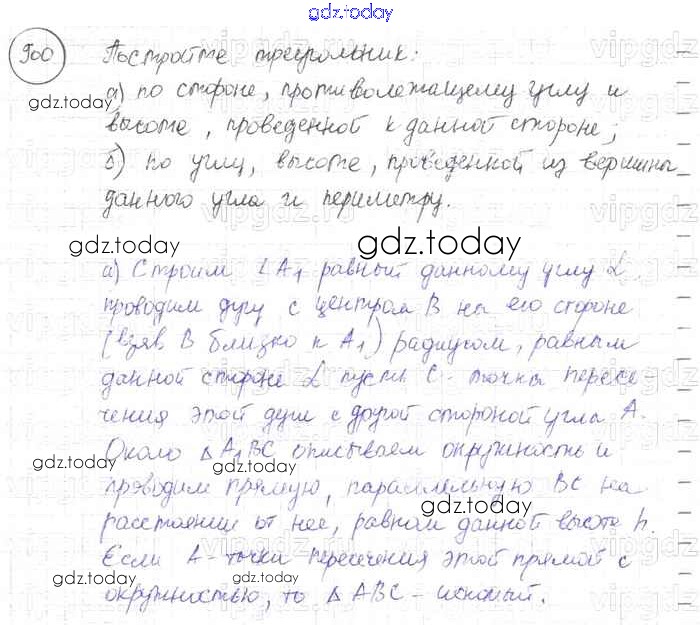 gdz.today
900 Постройте треугольник:
а) по стороне, противолежащему углу и
gdz.today
высоте, проведенной к данной стороне;
б) по углу, высоте, проведенной из вершины
данного угла и периметру.
gdz.today
gdz.today
а) Строим ∠A₁ равный данному углу α.
проводим дугу с центром B на его стороне
(взяв B близко к A₁) радиусом, равным
данной стороне α пусть C - точка пересе-
чения этой дуги с другой стороной угла A.
Около △A₁BC описываем окружность и
gdz.today
проводим прямую, параллельную BC на
gdz.today
расстоянии от нее, равном данной высоте h.
Если A - точка пересечения этой прямой с
gdz.today
gdz.today
окружностью, то △ABC - искомый.